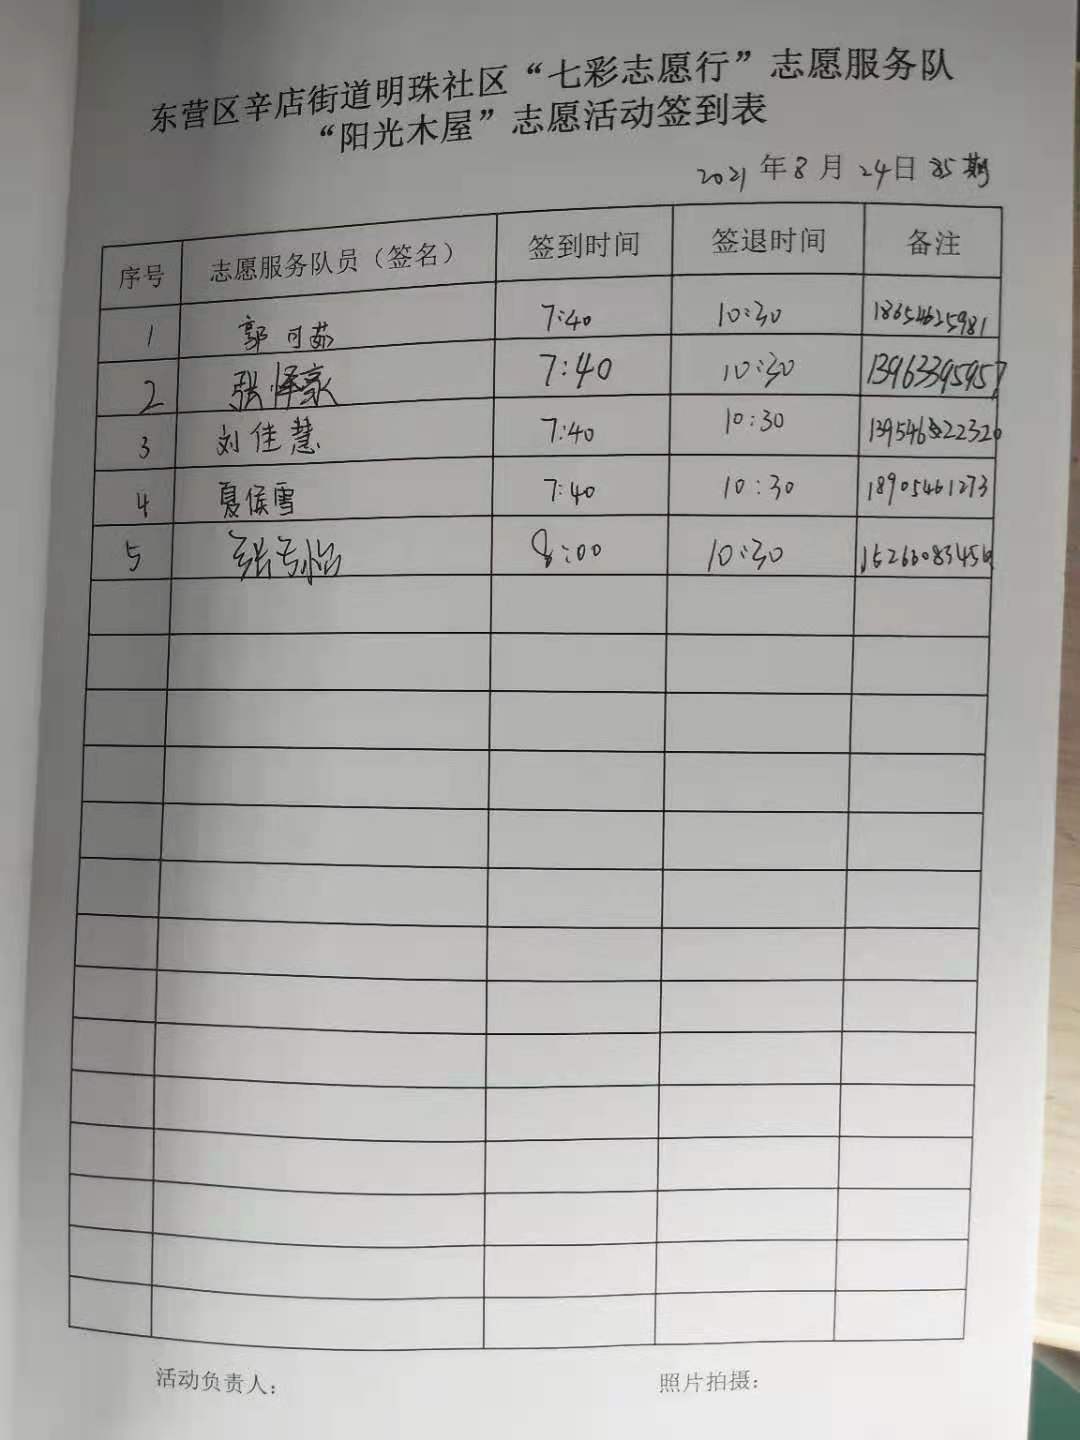 东营区辛店街道明珠社区“七彩志愿行”志愿服务队
“阳光木屋”志愿活动签到表
2021年8月24日 85期
序号 志愿服务队员（签名） 签到时间 签退时间 备注
1 郭可茹 7:40 10:30 18654625981
2 张怿豪 7:40 10:30 13963395957
3 刘佳慧 7:40 10:30
4 夏侯雪 7:40 10:30 18905461273
5 张 怡 8:00 10:30
活动负责人： 照片拍摄：